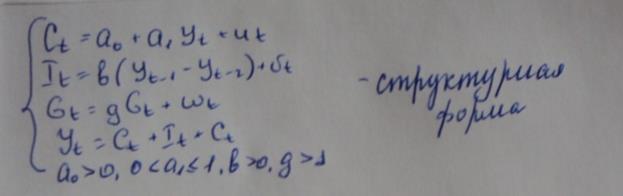 Cₜ = a₀ + a₁ yₜ + uₜ
Iₜ = b(yₜ₋₁ - yₜ₋₂) + vₜ
Gₜ = gGₜ + wₜ
yₜ = Cₜ + Iₜ + Cₜ
a₀ > 0, 0 < a₁ ≤ 1, b > 0, g > 1
- структурная
форма